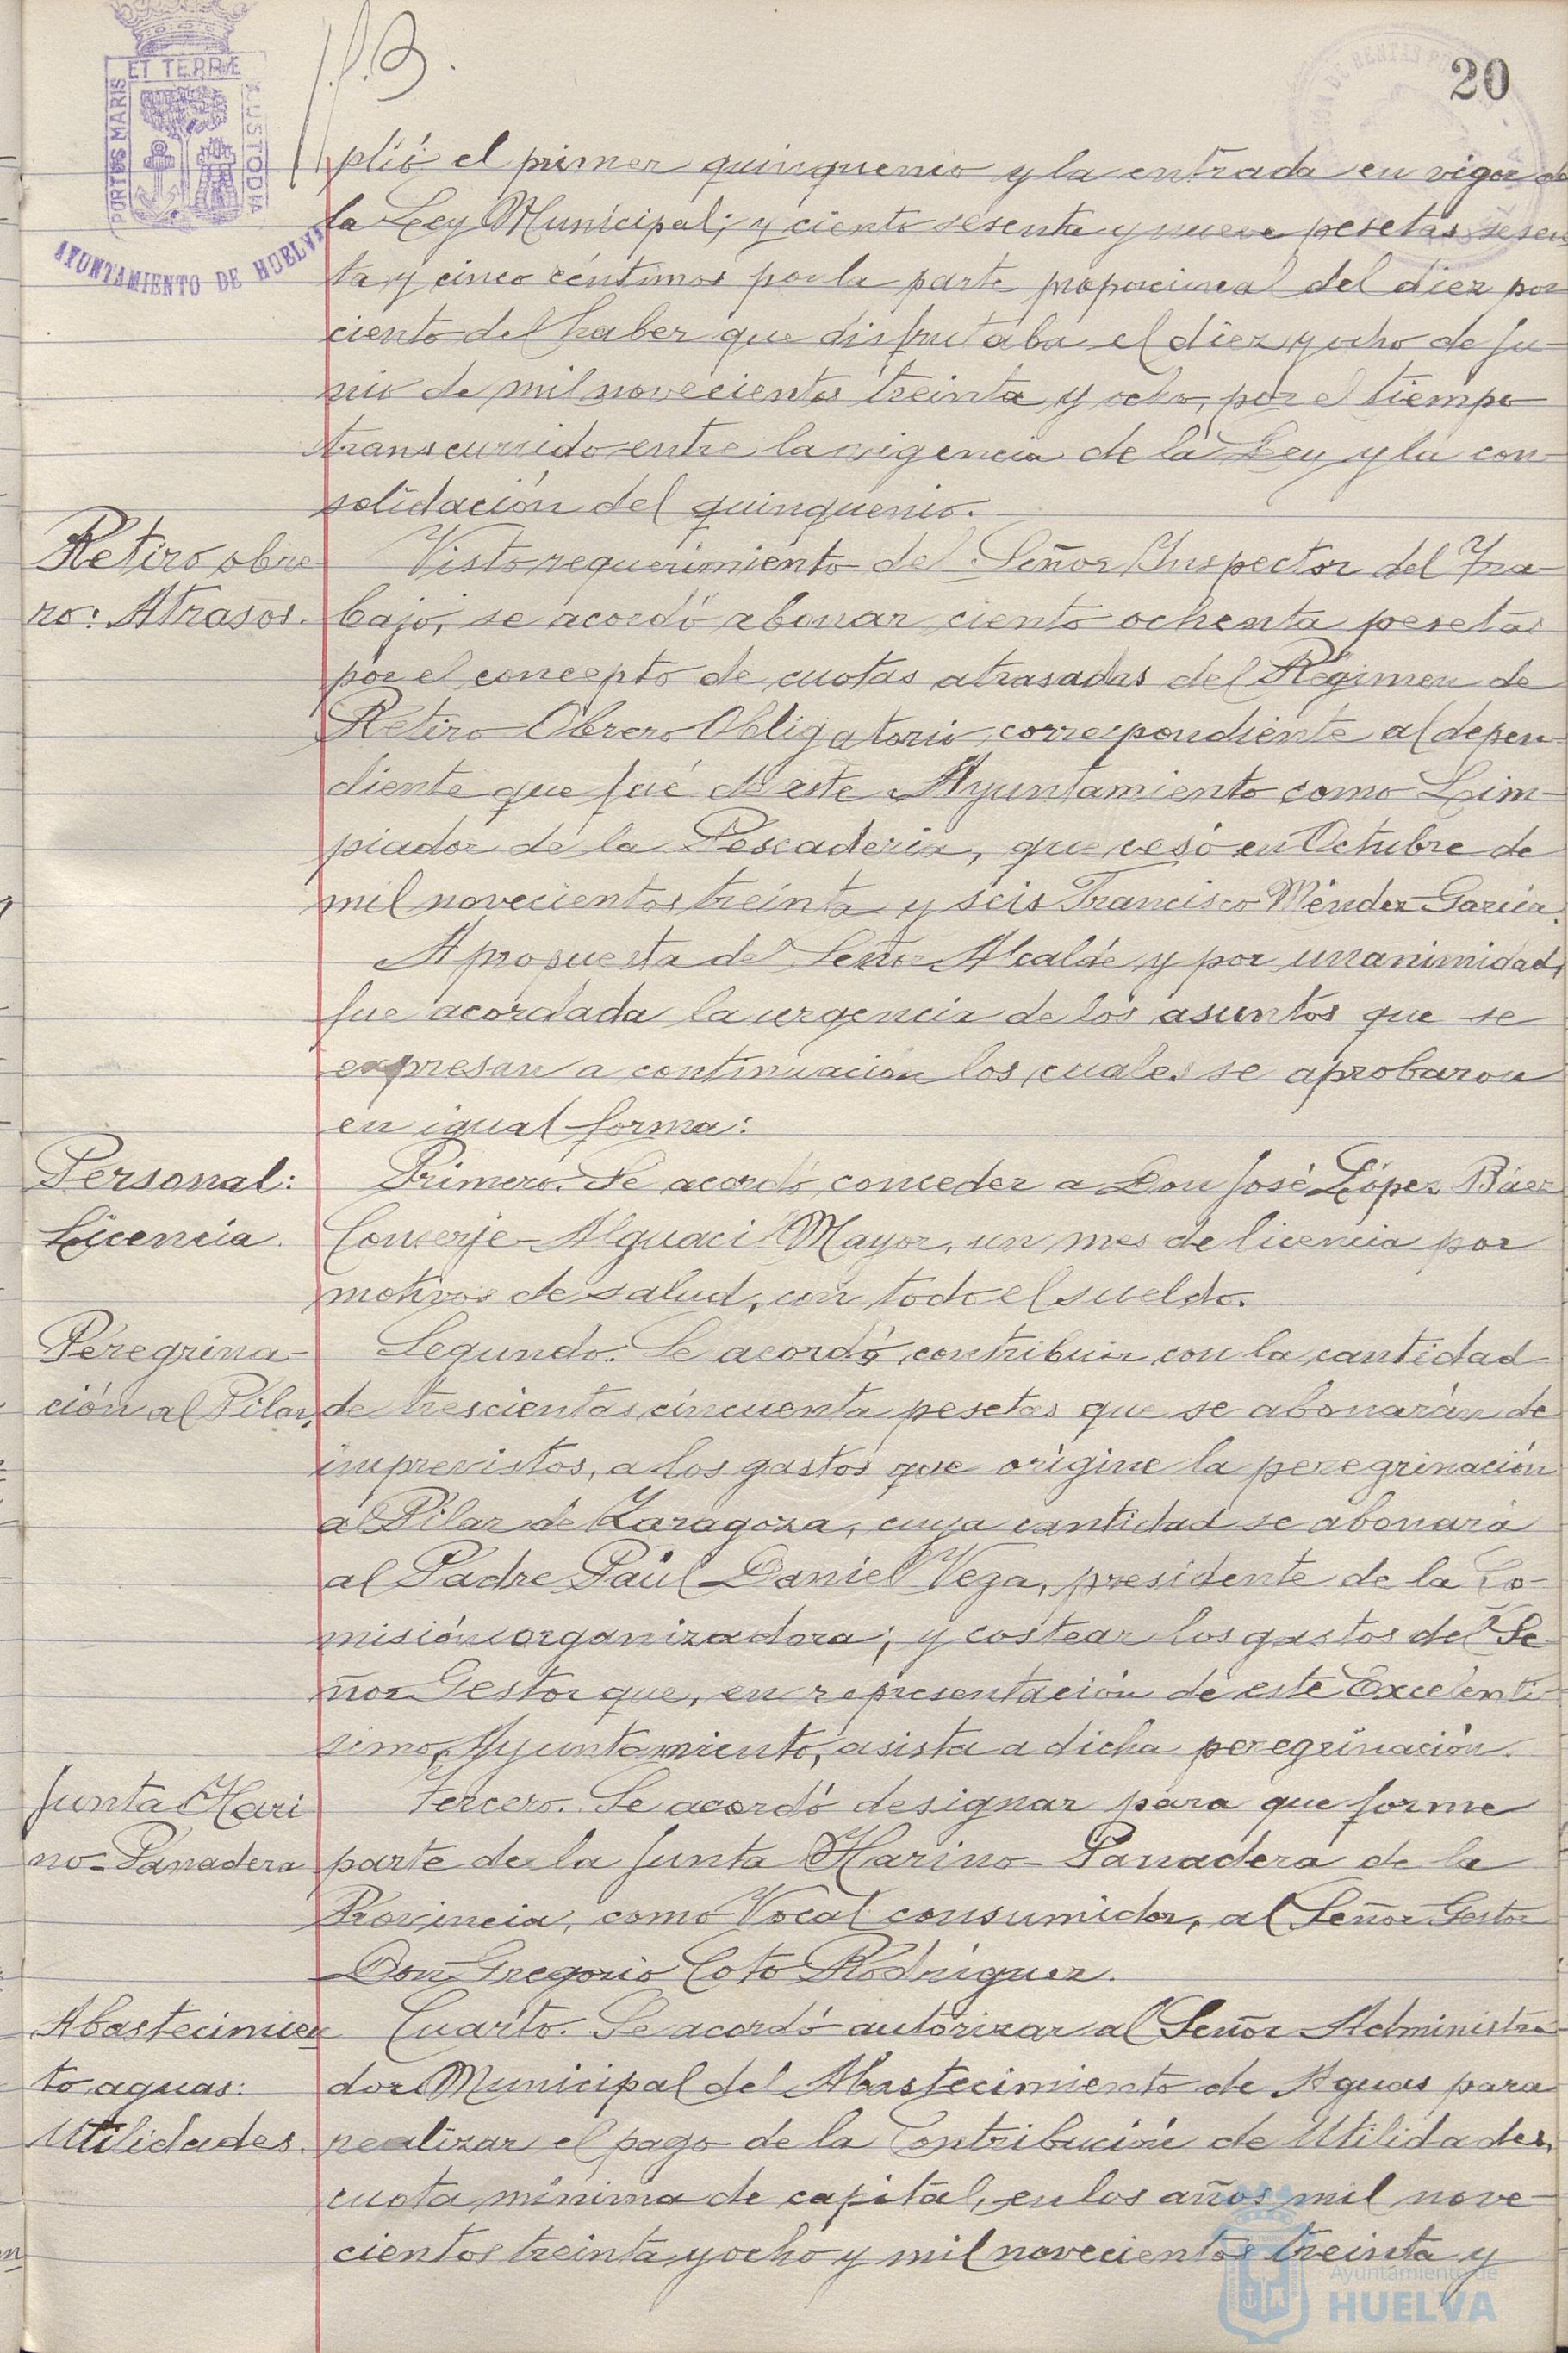 20
PORTUS MARIS ET TERRÆ CUSTODIA
AYUNTAMIENTO DE HUELVA
plió el primer quinquenio y la entrada en vigor de
la Ley Municipal; y ciento sesenta y nueve pesetas sesen
ta y cinco céntimos por la parte proporcional del diez por
ciento del haber que disfrutaba el diez y ocho de Ju-
nio de mil novecientos treinta y ocho, por el tiempo
transcurrido entre la vigencia de la Ley y la con-
solidación del quinquenio.
Retiro obre
ro: Atrasos.
Visto requerimiento del Señor Inspector del Tra-
bajo, se acordó abonar ciento ochenta pesetas
por el concepto de cuotas atrasadas del Régimen de
Retiro Obrero Obligatorio, correspondiente al depen-
diente que fué de este Ayuntamiento como Lim-
piador de la Pescaderia, que cesó en Octubre de
mil novecientos treinta y seis Francisco Méndez García.
A propuesta del Señor Alcalde y por unanimidad,
fue acordada la urgencia de los asuntos que se
expresan a continuación los cuales se aprobaron
en igual forma:
Personal:
Licencia.
Primero. Se acordó conceder a Don José López Báez
Conserje-Alguacil Mayor, un mes de licencia por
motivos de salud, con todo el sueldo.
Peregrina-
ción al Pilar,
Segundo. Se acordó contribuir con la cantidad
de trescientas cincuenta pesetas que se abonarán de
imprevistos, a los gastos que origine la peregrinación
al Pilar de Zaragoza, cuya cantidad se abonará
al Padre Paúl Daniel Vega, presidente de la Co-
misión organizadora; y costear los gastos del Se-
ñor Gestor que, en representación de este Excelentí-
simo Ayuntamiento, asista a dicha peregrinación.
Junta Hari
no-Panadera
Tercero. Se acordó designar para que forme
parte de la Junta Harino-Panadera de la
Provincia, como Vocal consumidor, al Señor Gestor
Don Gregorio Coto Rodríguez.
Abastecimien
to aguas:
Utilidades.
Cuarto. Se acordó autorizar al Señor Administra-
dor Municipal del Abastecimiento de Aguas para
realizar el pago de la Contribución de Utilidades,
cuota mínima de capital, en los años mil nove-
cientos treinta y ocho y mil novecientos treinta y
Ayuntamiento de
HUELVA